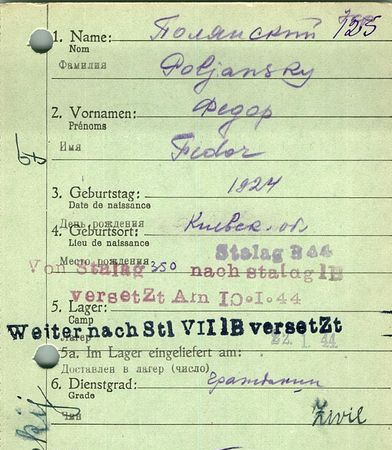 1. Name: Полянский 125
Nom
Фамилия Poljansky
2. Vornamen: Федор
Prénoms
Имя Fedor
3. Geburtstag: 1924
Date de naissance
День рождения
4. Geburtsort: Киевск. об.
Lieu de naissance
Место рождения Stalag 344
Von Stalag 350 nach stalag IB
versetzt Am 10.I.44
5. Lager:
Camp
Лагерь
Weiter nach Stl VIIIB versetzt
22.1.44
5a. Im Lager eingeliefert am:
Доставлен в лагер (число)
6. Dienstgrad: гражданин
Grade
Чин Zivil